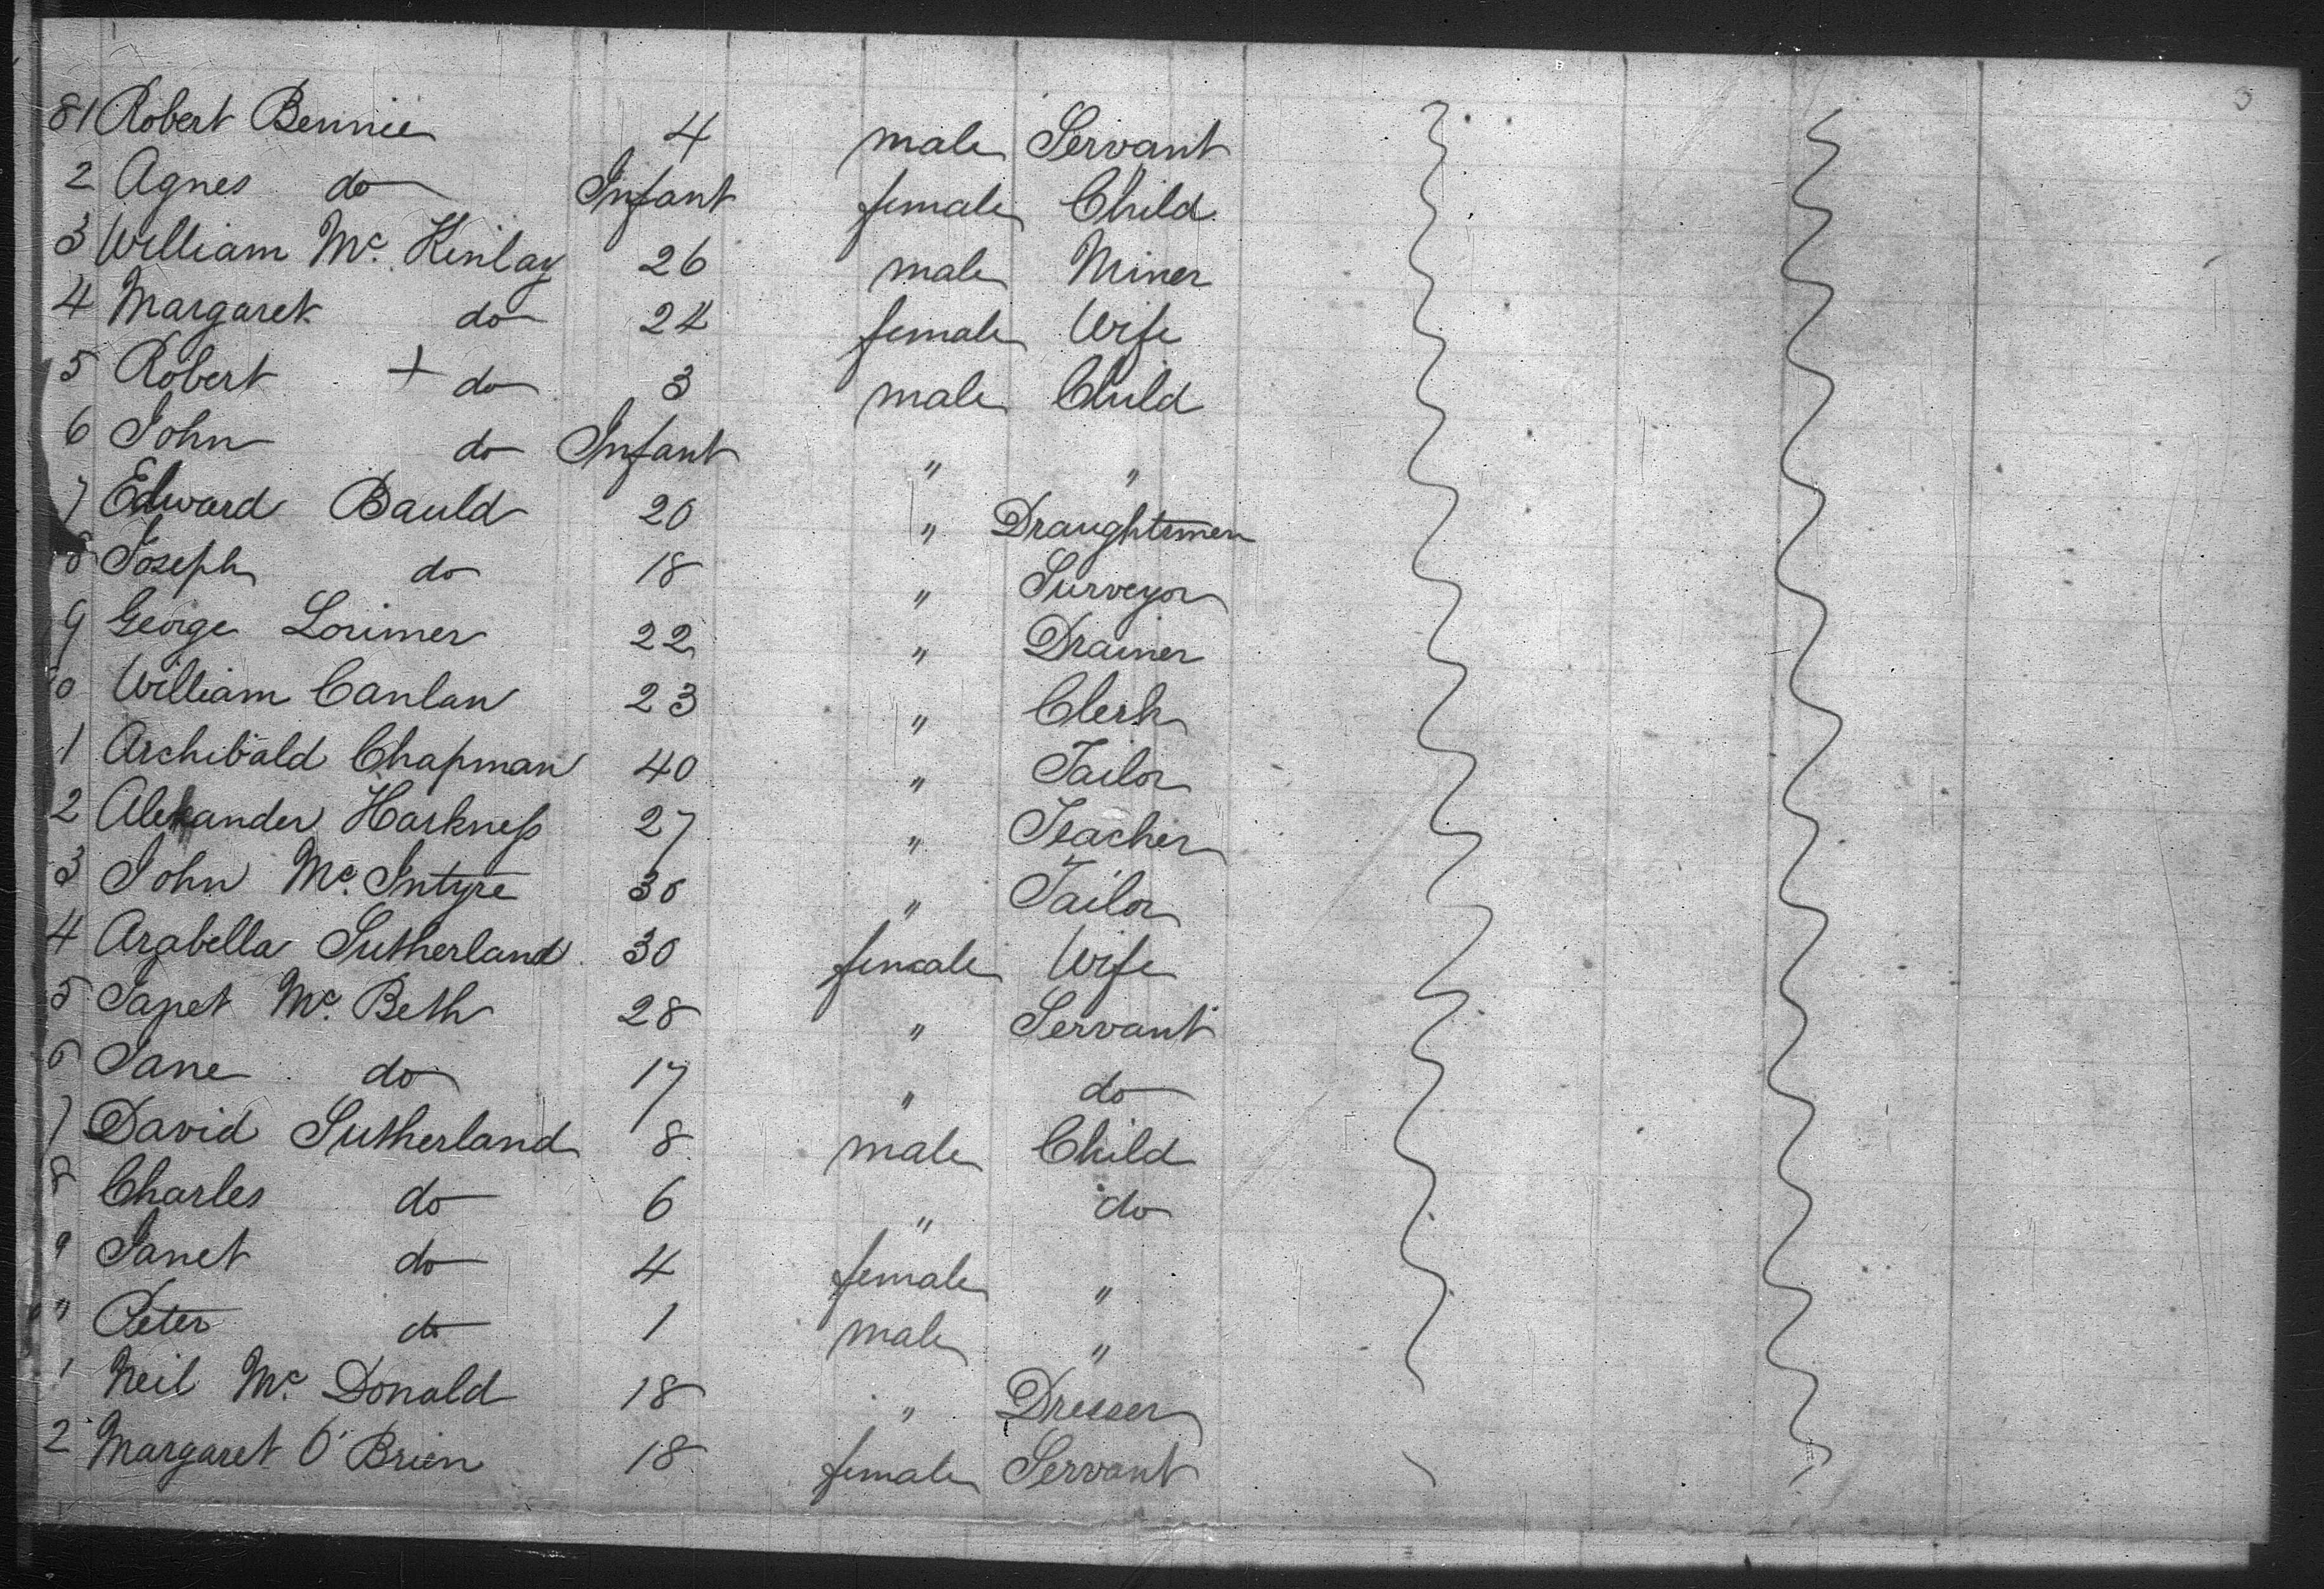 81 Robert Bennie 4 male Servant
2 Agnes do Infant female Child
3 William Mc. Kinlay 26 male Miner
4 Margaret do 24 female Wife
5 Robert + do 3 male Child
6 John do Infant " "
7 Edward Bauld 20 " Draughtsmen
8 Joseph do 18 " Surveyor
9 George Lorimer 22 " Drainer
90 William Canlan 23 " Clerk
1 Archibald Chapman 40 " Tailor
2 Alexander Harkness 27 " Teacher
3 John Mc. Intyre 30 " Tailor
4 Arabella Sutherland 30 female Wife
5 Janet Mc. Beth 28 " Servant
6 Jane do 17 " do
7 David Sutherland 8 male Child
8 Charles do 6 " do
9 Janet do 4 female "
" Peter do 1 male "
1 Neil Mc. Donald 18 " Dresser
2 Margaret O'Brien 18 female Servant